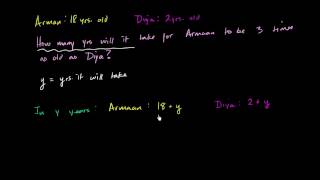 Arman: 18 yrs. old Diya: 2 yrs. old
How many yrs will it take for Armaan to be 3 times
as old as Diya?
y = yrs. it will take
In y years: Armaan: 18+y Diya: 2+y